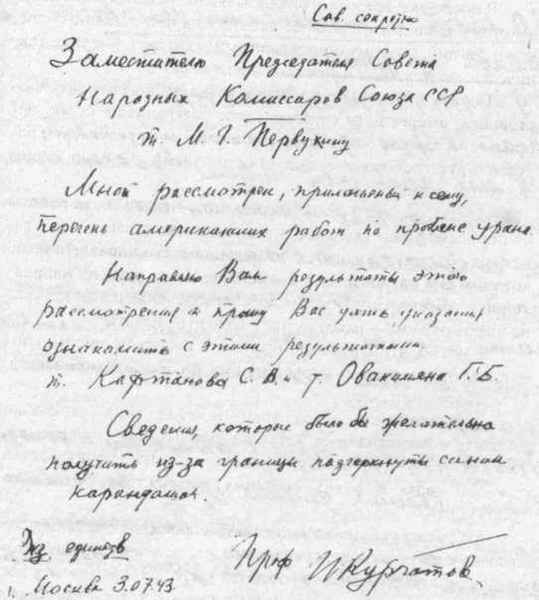 Сов. секретно
Заместителю Председателя Совета
Народных Комиссаров Союза ССР
т. М. Г. Первухину
Мной рассмотрен, приложенный к сему,
перечень американских работ по проблеме урана.
Направляю Вам результаты этого
рассмотрения и прошу Вас дать указания
ознакомить с этими результатами
т. Кафтанова С. В. и т. Овакимяна Г. Б.
Сведения, которые было бы желательно
получить из-за границы подчеркнуты синим
карандашом.
Экз. единств
Проф ИКурчатов
г. Москва 3.07.43